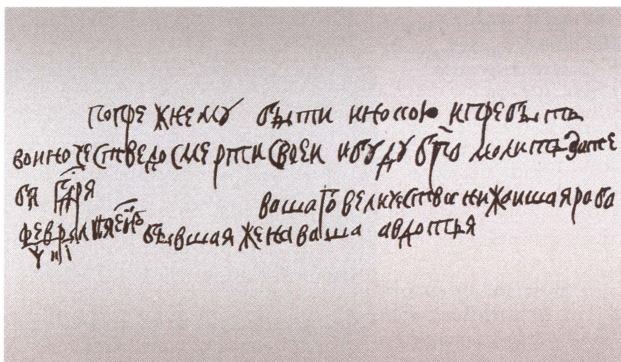 попрежнему быти инокою ипребыть
воиночестведосмерти своеи ибуду бга молить Зате
бя гдря вашего величества нижаишая раба
февраля бывшая жена ваша авдотья